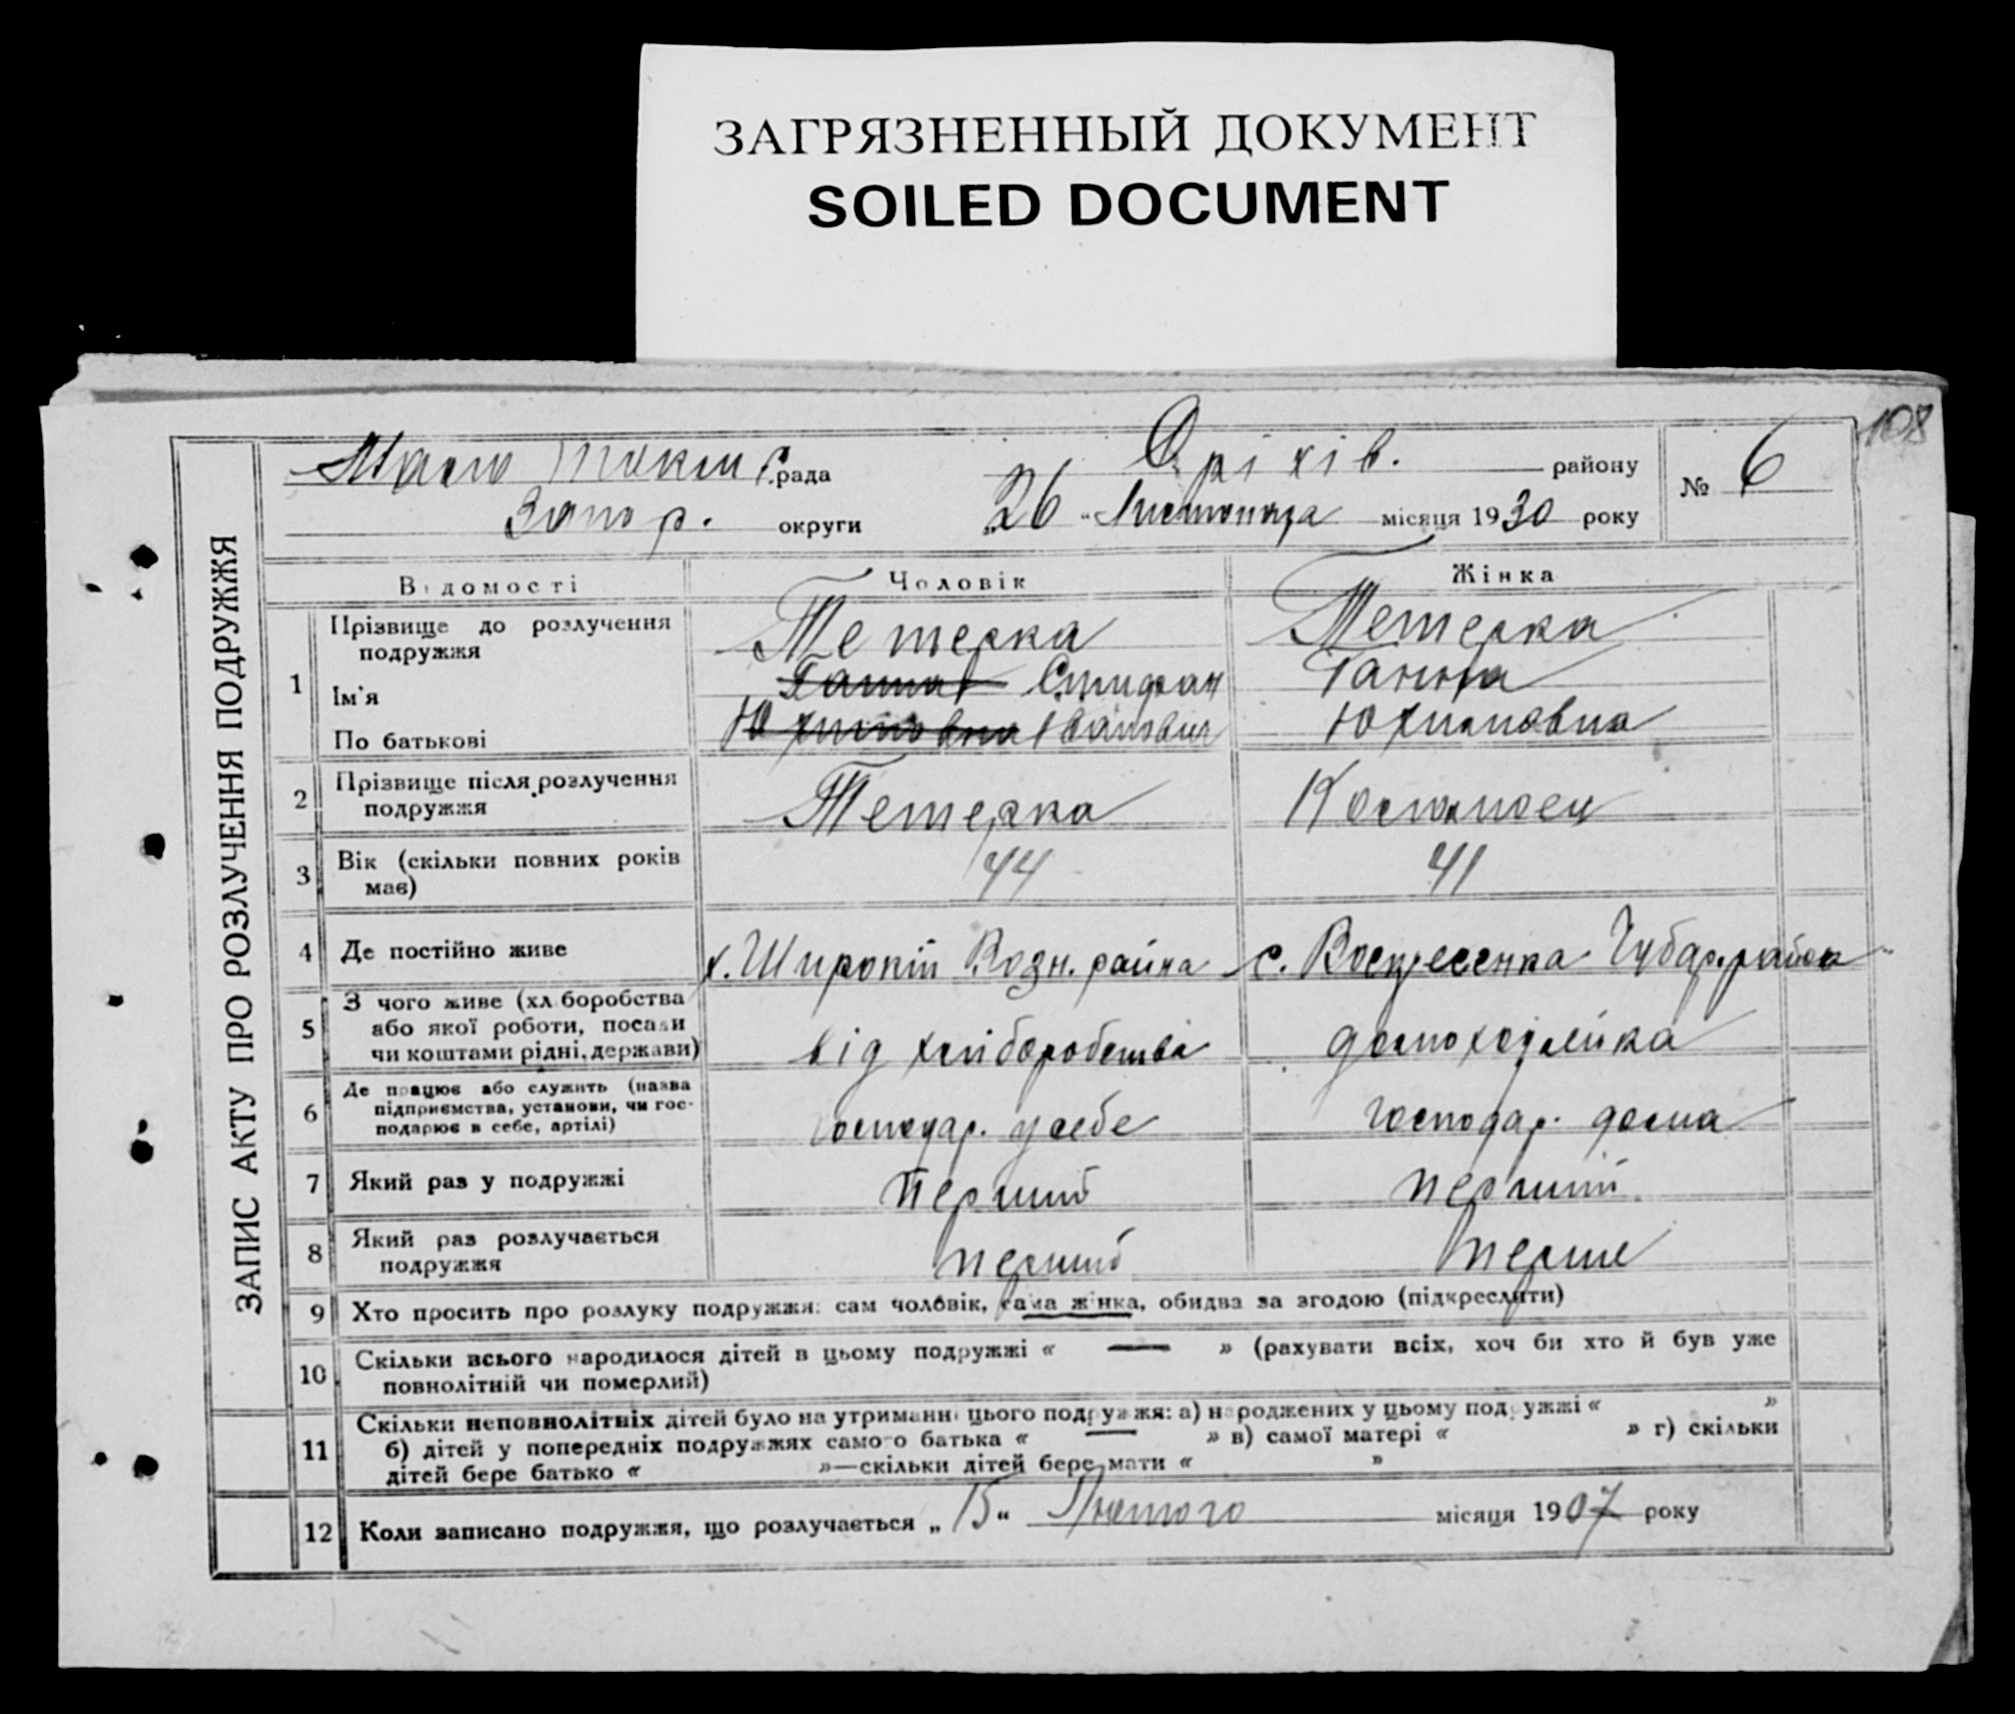 ЗАГРЯЗНЕННЫЙ ДОКУМЕНТ
SOILED DOCUMENT
108
Мало Токм. С.рада Оріхів. району № 6
Запор. округи „26“ Листопада місяця 1930 року
ЗАПИС АКТУ ПРО РОЗЛУЧЕННЯ ПОДРУЖЖЯ
Відомості Чоловік Жінка
1 Прізвище до розлучення подружжя Тетерка Тетерка
Ім'я Ганна Стифан Ганна
По батькові Юхимовна Іванович Юхимовна
2 Прізвище після розлучення подружжя Тетерка
3 Вік (скільки повних років має) 44 41
4 Де постійно живе х. Широкий Водн. района с. Воскресенка Чубар. района
5 З чого живе (хл боробства або якої роботи, посади чи коштами рідні, держави) від хліборобства домохозяйка
6 Де працює або служить (назва підприємства, установи, чи господарює в себе, артілі) господар. у себе господар. дома
7 Який раз у подружжі перший перший
8 Який раз розлучається подружжя перший перше
9 Хто просить про розлуку подружжя: сам чоловік, сама жінка, обидва за згодою (підкреслити)
10 Скільки всього народилося дітей в цьому подружжі « — » (рахувати всіх, хоч би хто й був уже
повнолітній чи померлий)
11 Скільки неповнолітніх дітей було на утриманні цього подружжя: а) народжених у цьому подружжі « »
б) дітей у попередніх подружжях самого батька « — » в) самої матері « » г) скільки
дітей бере батько « »—скільки дітей бере мати « »
12 Коли записано подружжя, що розлучається „15“ Лютого місяця 1907 року